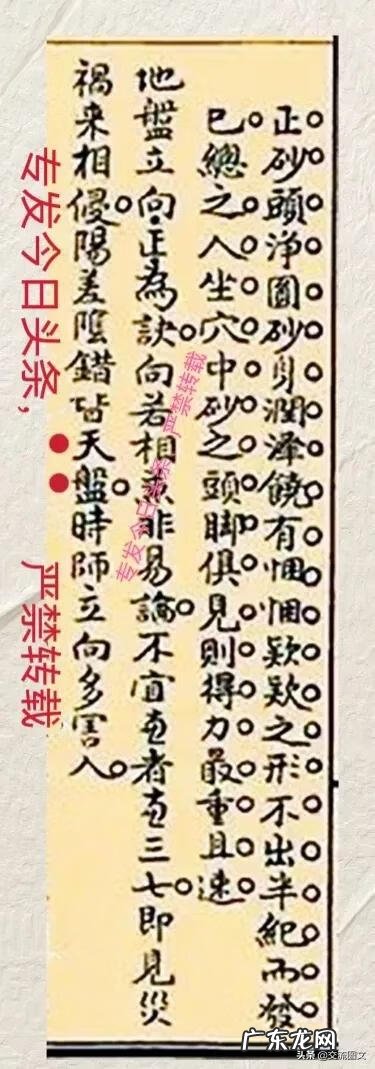 正砂頭淨圓砂身潤澤饒有悃悃欵欵之形不出半紀而發
已總之人坐穴中砂之頭脚俱見則得力最重且速
地盤立向正為訣向若相兼非易論不宜兼者兼三七即見災
禍来相侵陽差陰錯皆天盤時師立向多害人
专发今日头条，严禁转载
专发今日头条 严禁转载
广东龙网
头条 @交流图文